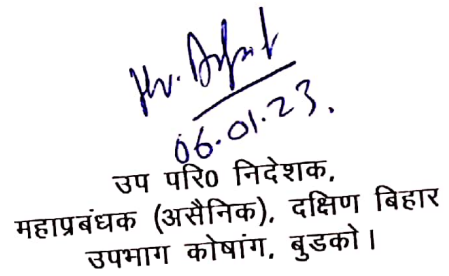 06.01.23.
उप परि0 निदेशक,
महाप्रबंधक (असैनिक), दक्षिण बिहार
उपभाग कोषांग, बुडको।